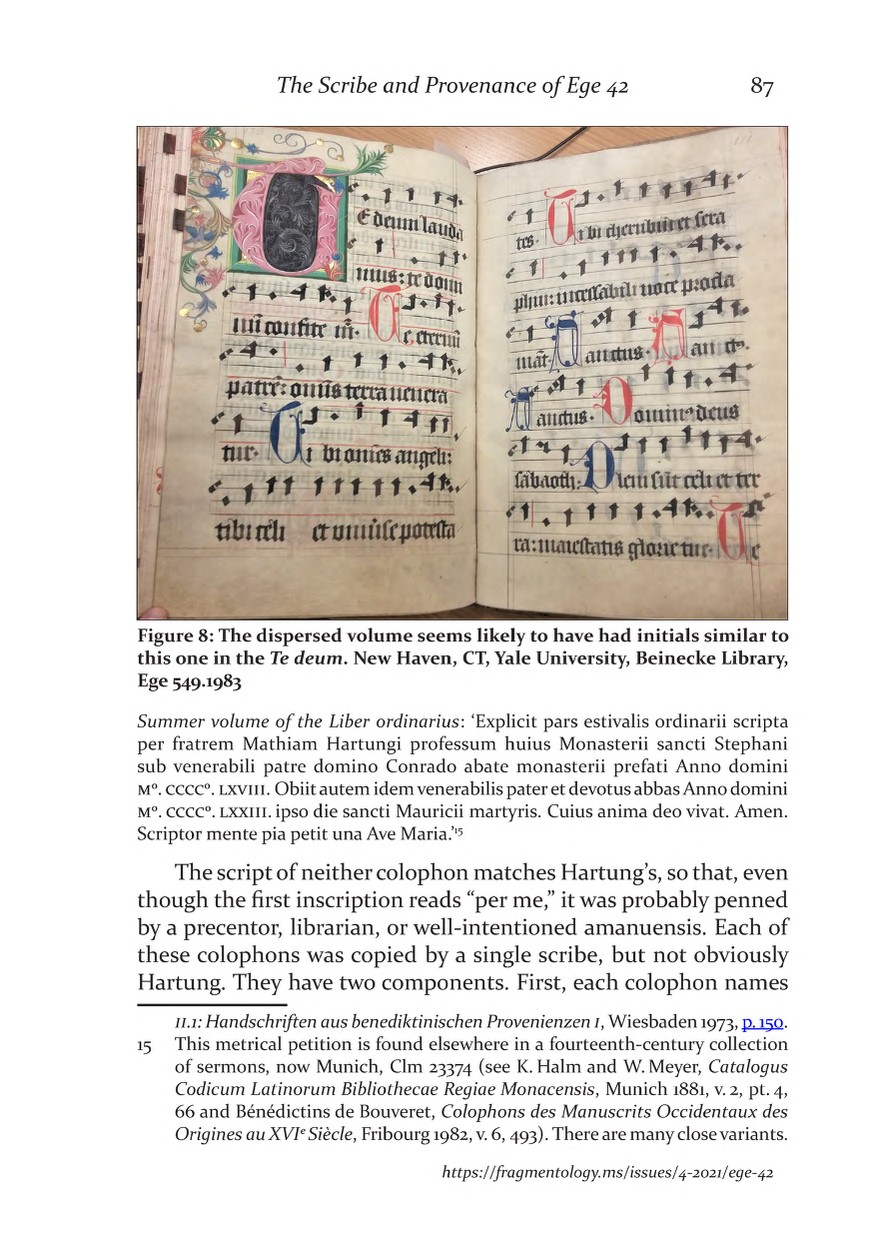 The Scribe and Provenance of Ege 42 87
E deum lauda
mus: te domi
nū confite m̄. Te eternū
patrē: om̄is terra uenera
tur. Tibi om̄es angeli:
tibi celi et
tes. Tibi cherubin et sera
phin: incessabili uoce procla
māt. Sanctus. Sanct9.
Sanctus. Domin9 deus
sabaoth: Pleni sūt celi et ter
ra: maiestatis glorie tue. Te
Figure 8: The dispersed volume seems likely to have had initials similar to
this one in the Te deum. New Haven, CT, Yale University, Beinecke Library,
Ege 549.1983
Summer volume of the Liber ordinarius: ‘Explicit pars estivalis ordinarii scripta
per fratrem Mathiam Hartungi professum huius Monasterii sancti Stephani
sub venerabili patre domino Conrado abate monasterii prefati Anno domini
Mº. CCCCº. LXVIII. Obiit autem idem venerabilis pater et devotus abbas Anno domini
Mº. CCCCº. LXXIII. ipso die sancti Mauricii martyris. Cuius anima deo vivat. Amen.
Scriptor mente pia petit una Ave Maria.’15
The script of neither colophon matches Hartung’s, so that, even
though the first inscription reads “per me,” it was probably penned
by a precentor, librarian, or well-intentioned amanuensis. Each of
these colophons was copied by a single scribe, but not obviously
Hartung. They have two components. First, each colophon names
II.1: Handschriften aus benediktinischen Provenienzen I, Wiesbaden 1973, p. 150.
15 This metrical petition is found elsewhere in a fourteenth-century collection
of sermons, now Munich, Clm 23374 (see K. Halm and W. Meyer, Catalogus
Codicum Latinorum Bibliothecae Regiae Monacensis, Munich 1881, v. 2, pt. 4,
66 and Bénédictins de Bouveret, Colophons des Manuscrits Occidentaux des
Origines au XVIe Siècle, Fribourg 1982, v. 6, 493). There are many close variants.
https://fragmentology.ms/issues/4-2021/ege-42